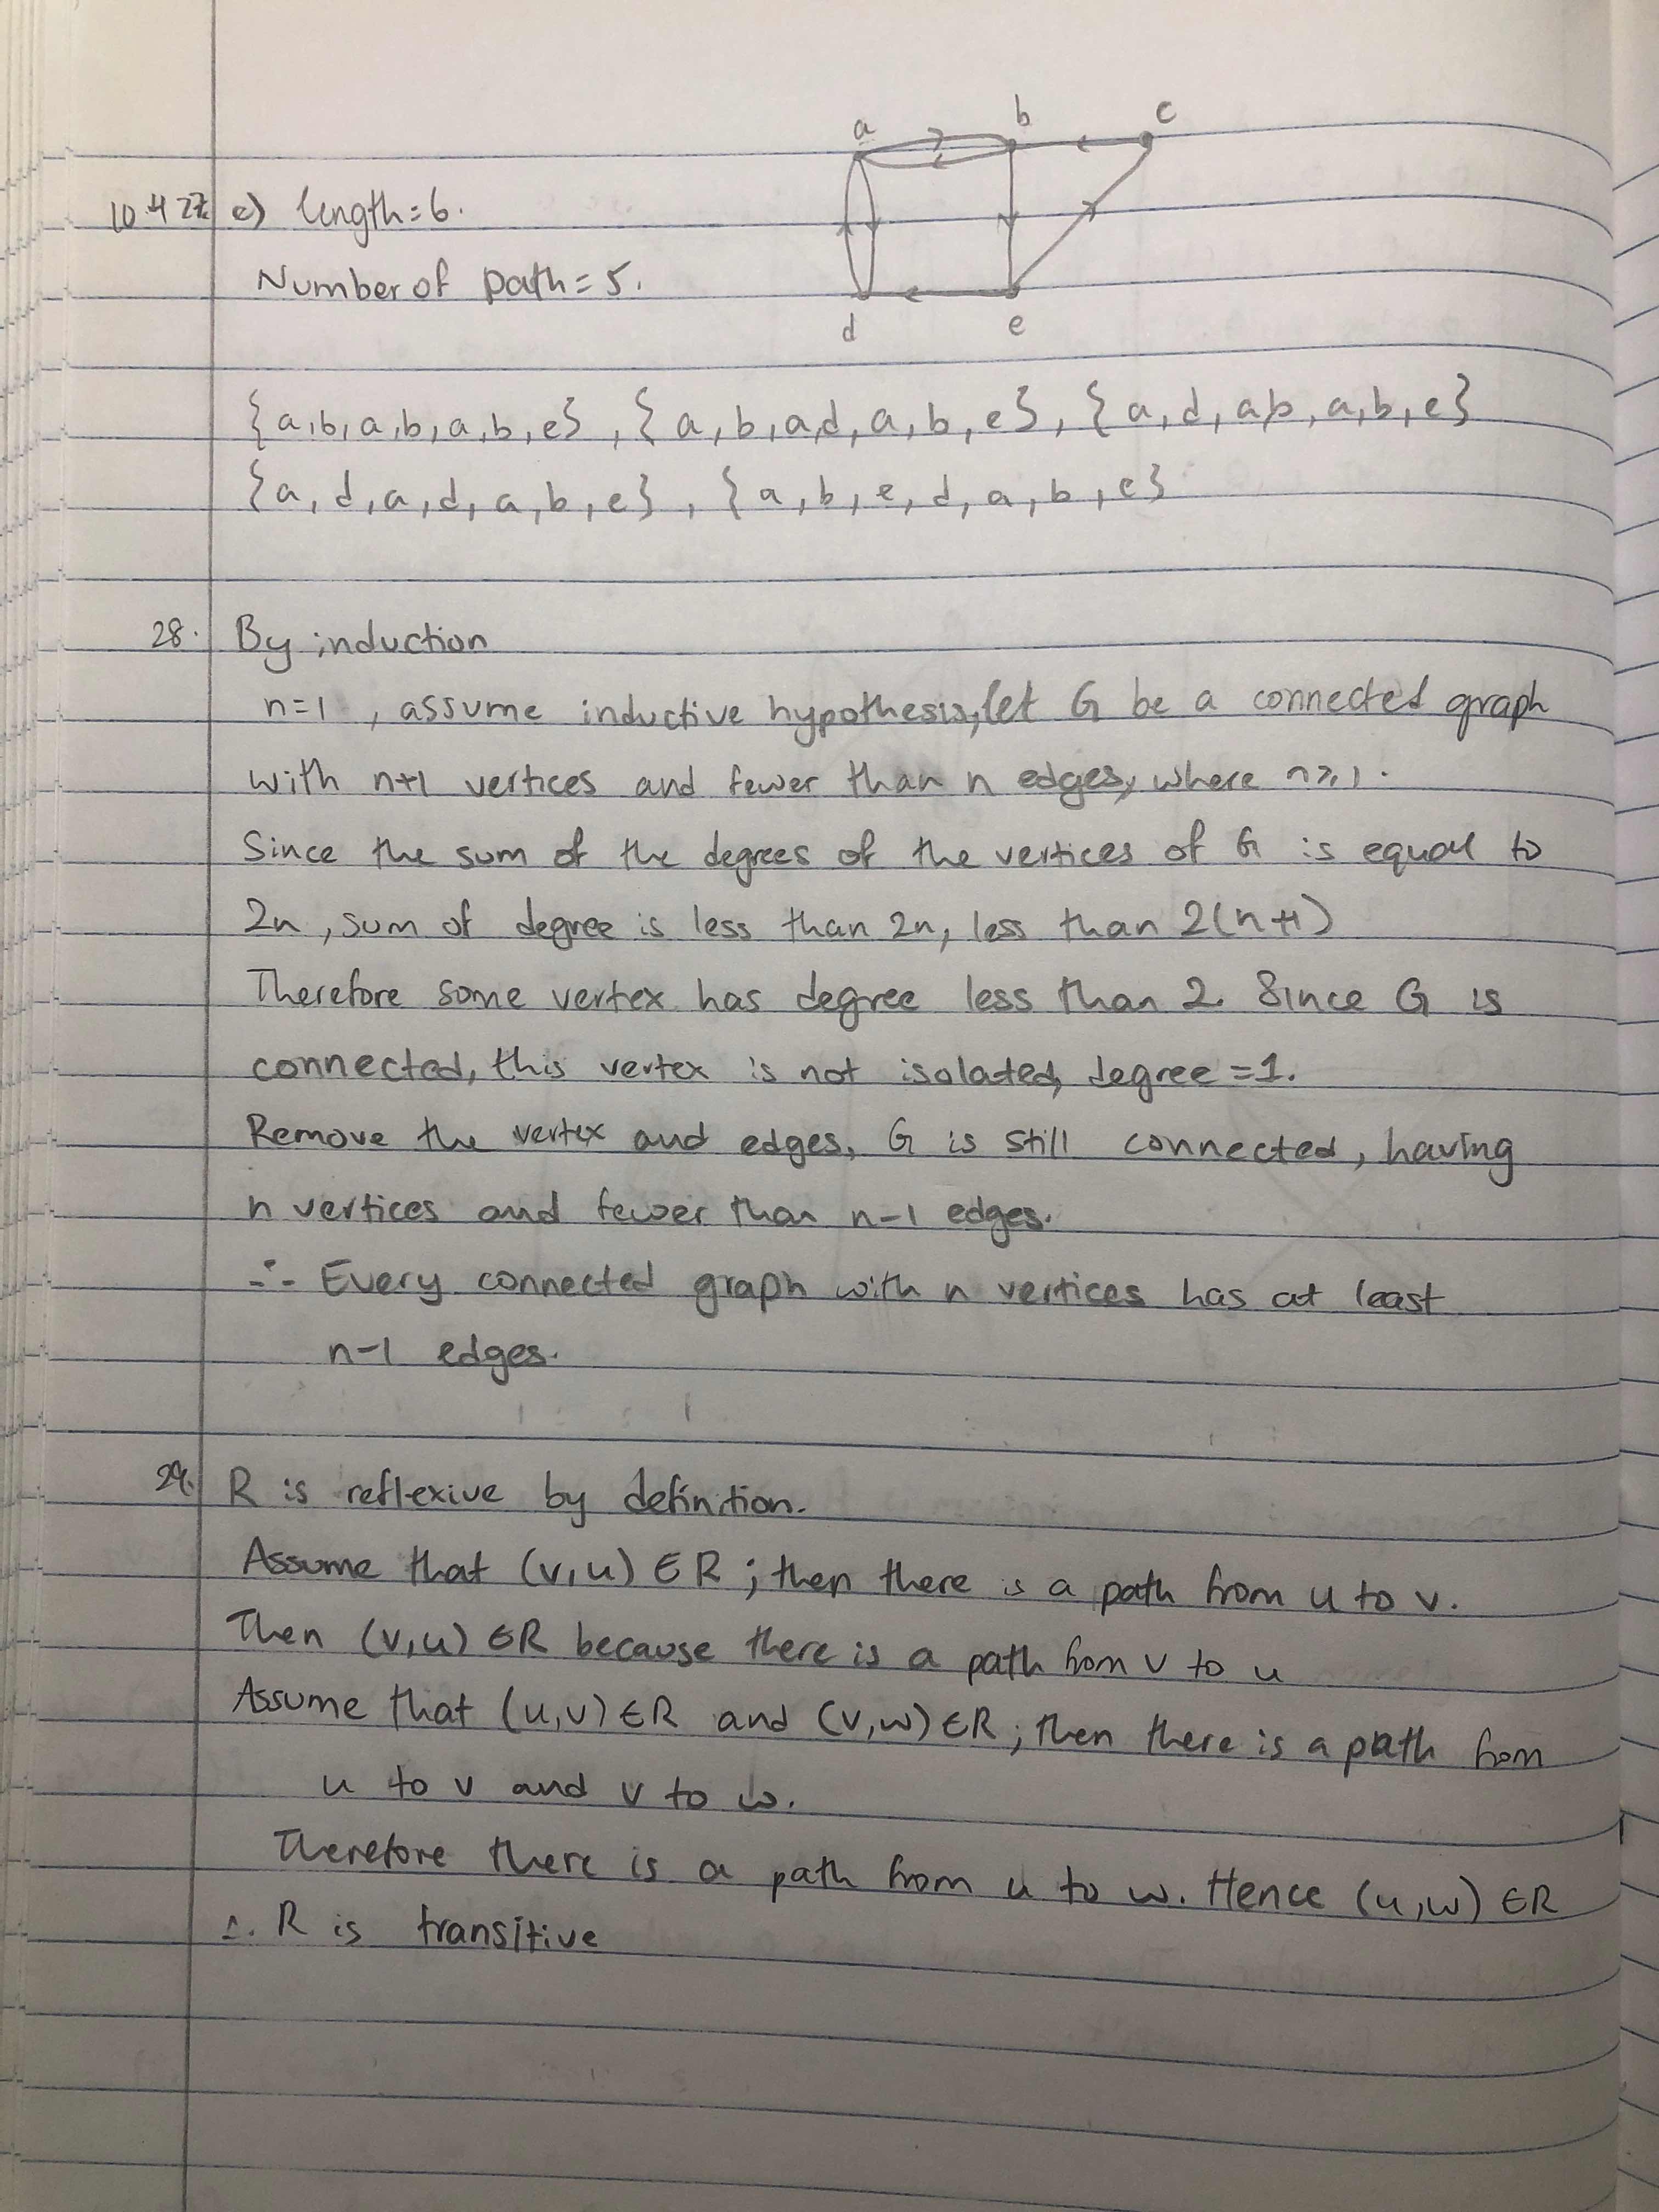 a b c
10.4 27 e) length=6.
Number of path=5.
d e
{a,b,a,b,a,b,e}, {a,b,a,d,a,b,e}, {a,d,a,b,a,b,e}
{a,d,a,d,a,b,e}, {a,b,e,d,a,b,e}
28. By induction
n=1, assume inductive hypothesis, let G be a connected graph
with n+1 vertices and fewer than n edges, where n≥1.
Since the sum of the degrees of the vertices of G is equal to
2n, sum of degree is less than 2n, less than 2(n+1)
Therefore some vertex has degree less than 2. Since G is
connected, this vertex is not isolated, degree=1.
Remove the vertex and edges, G is still connected, having
n vertices and fewer than n-1 edges.
∴ Every connected graph with n vertices has at least
n-1 edges.
29. R is reflexive by definition.
Assume that (v,u) ∈ R; then there is a path from u to v.
Then (v,u) ∈ R because there is a path from v to u
Assume that (u,v) ∈ R and (v,w) ∈ R; then there is a path from
u to v and v to w.
Therefore there is a path from u to w. Hence (u,w) ∈ R
∴ R is transitive